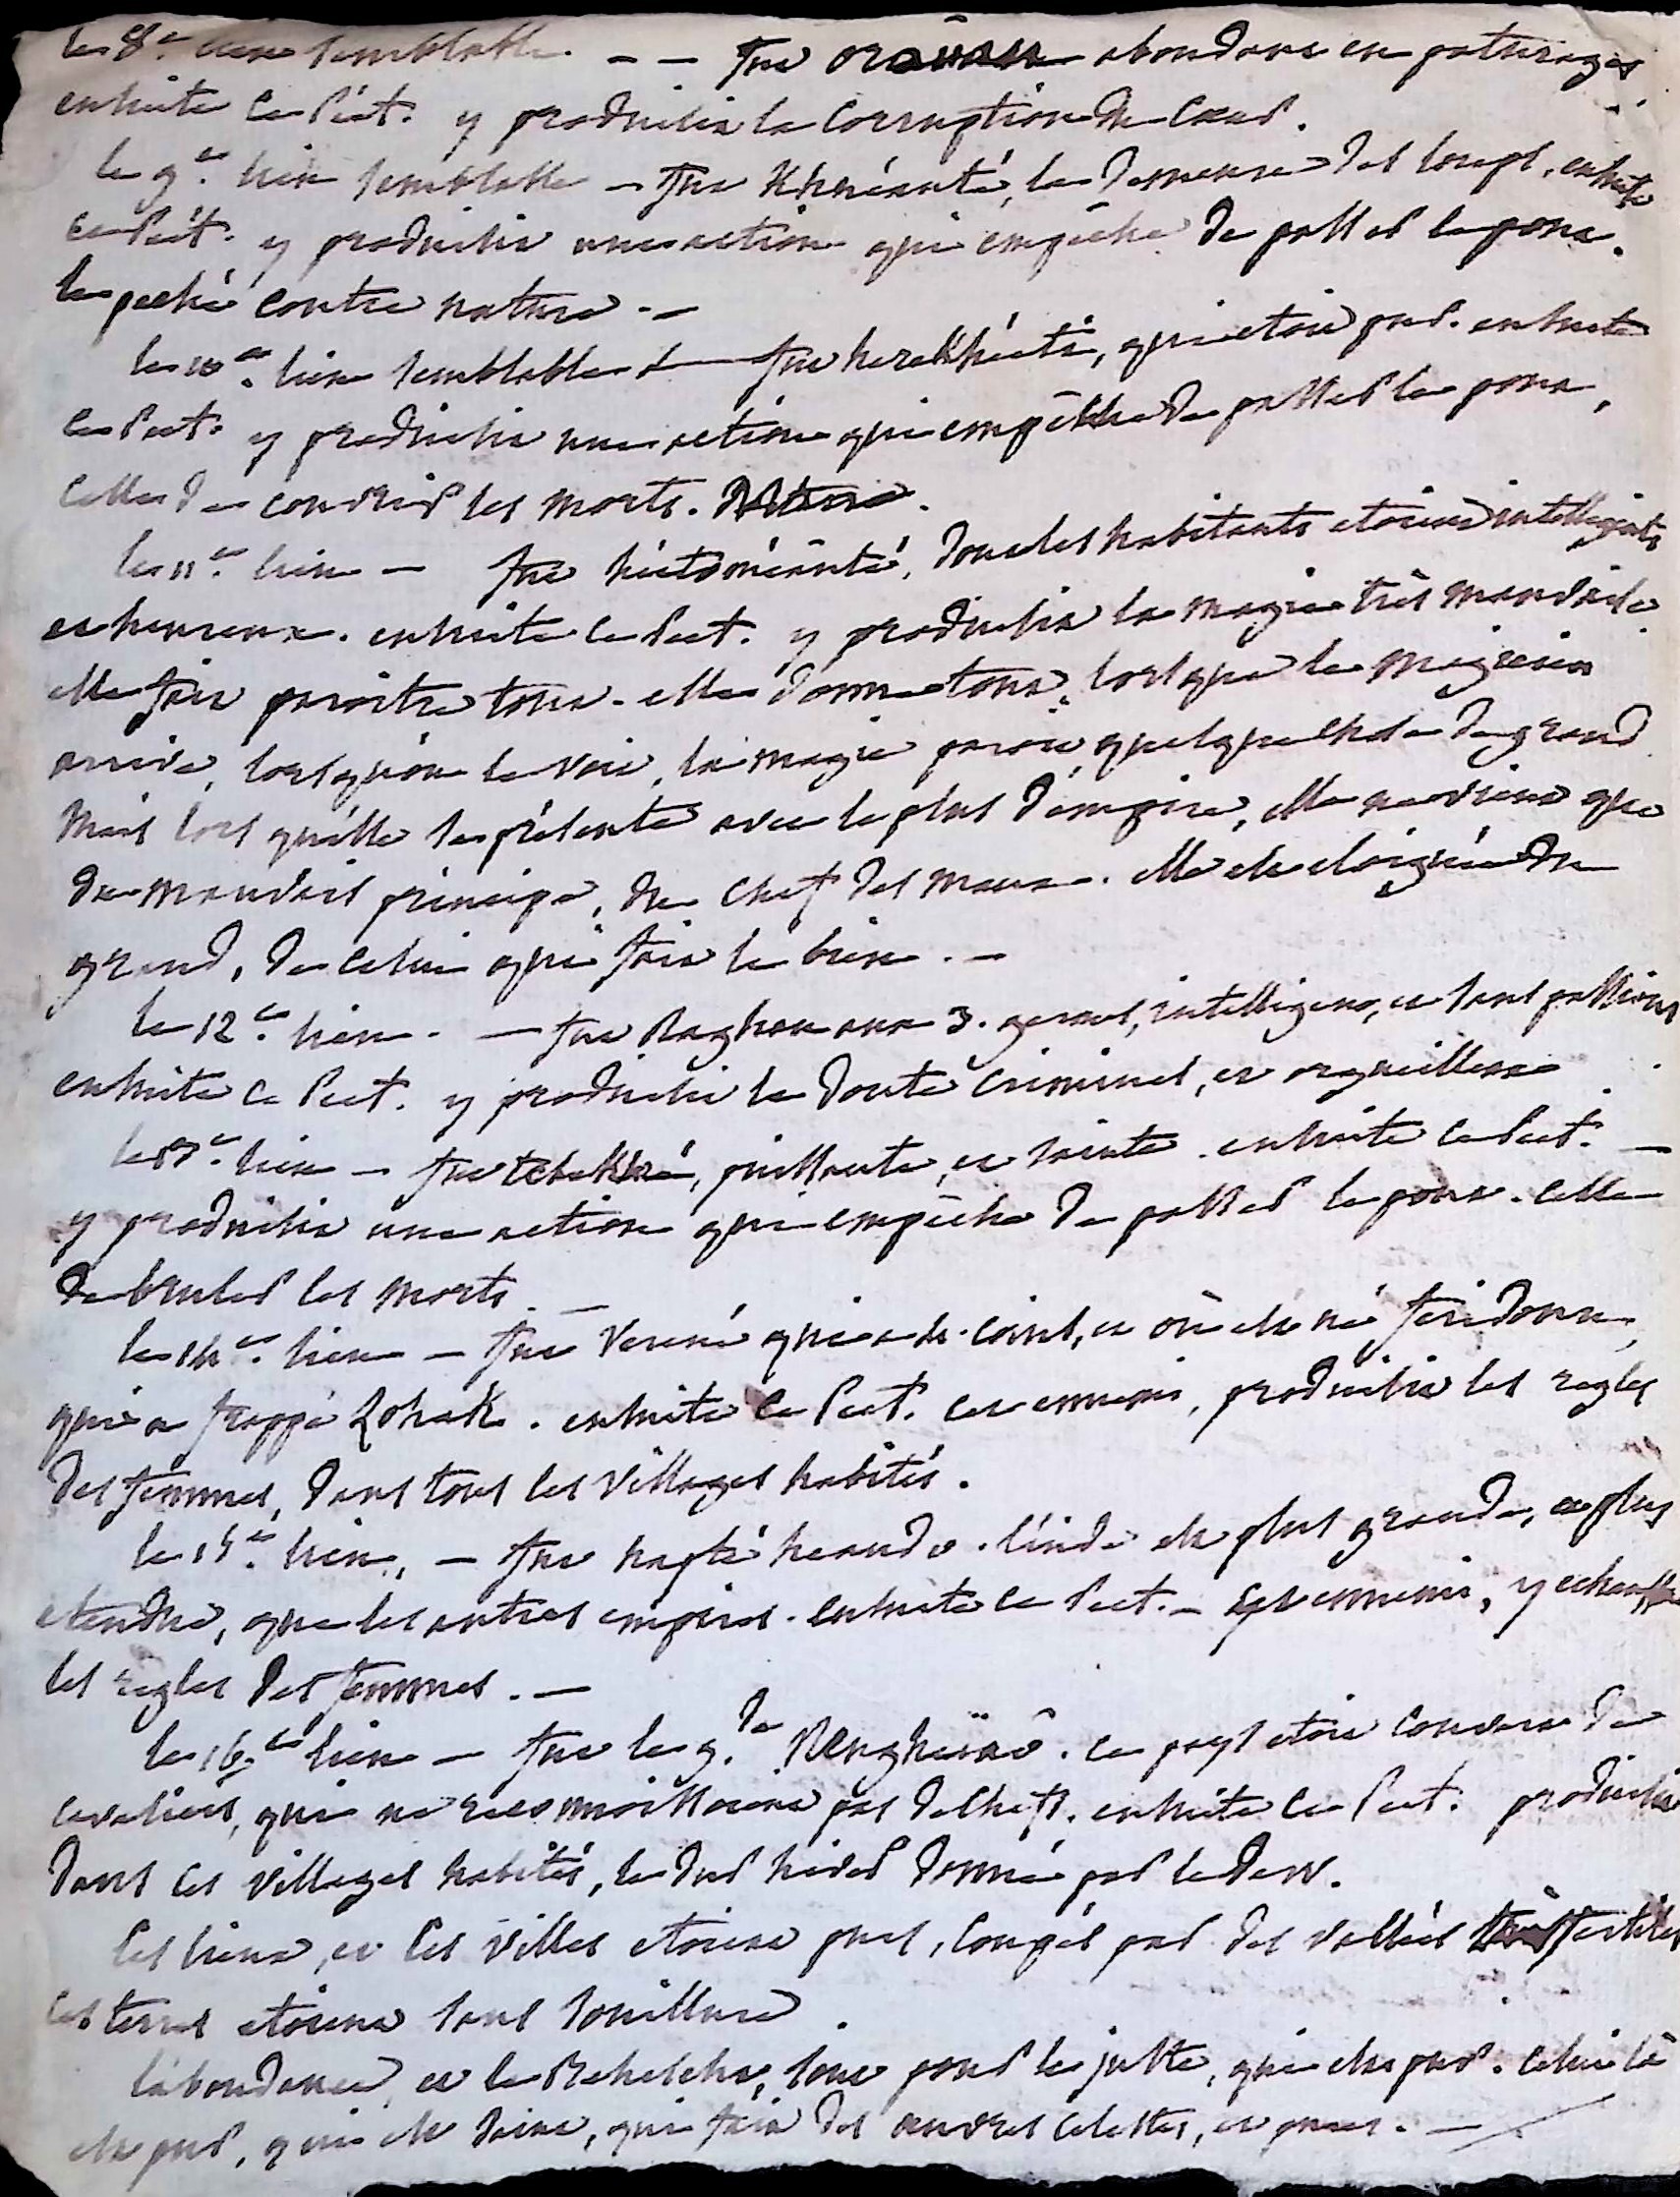 le 8.e lieu semblable. - - fut orouan abondant en paturages
ensuite ce Peet. y produisit la corruption du Cœur.
le 9.e lieu semblable - fut Khnéanté, la demeure des loups, ensuite
ce Peet. y produisit une action qui empêche de passer le pont.
le peché contre nature. -
le 10.e lieu semblable - fut herekhéeti, qui etoit pur. ensuite
ce Peet. y produisit une action qui empêche de passer le pont,
celle de couvrir les morts.
le 11.e lieu - fut héetoméanté, dont les habitants etoient intelligents
et heureux. ensuite ce Peet. y produisit la magie très mauvaise.
elle fait paroitre tout. elle donne tout, lorsque le magicien
arrive, lorsqu'on le voit, la magie paroit quelque chose de grand
Mais lors qu'elle se présente avec le plus d'empire, elle ne vient que
du mauvais principe, du chef des maux. elle est eloignée du
grand, de celui qui fait le bien. -
le 12.e lieu. - fut Raghan aux 3. germes, intelligent, et sans passions
ensuite ce Peet. y produisit le doute criminel, et orgueilleux
le 13.e lieu - fut tchekhré, puissante, et sainte. ensuite ce Peet. -
y produisit une action qui empêche de passer le pont. celle
de bruler les morts. -
le 14.e lieu - fut Verené qui a de. coins, et où est né feridoun,
qui a frappé Zohak. ensuite ce Peet. cet ennemi, produisit les regles
des femmes, dans tous les villages habités.
le 15.e lieu, - fut hapté heando. l'inde est plus grande, et plus
etendue, que les autres empires. ensuite ce Peet. - cet ennemi, y echauffa
les regles des femmes. -
le 16.e lieu - fut le g. de Renghëiao. ce pays etoit couvert de
cavaliers, qui ne reconnoissoient pas de chefs. ensuite ce Peet. produisit
dans ces villages habités, le dur hiver donné par le dew.
Ces lieux, et ces villes etoient purs, coupés par des vallées fertiles
ces terres etoient sans souillure.
l'abondance, et le Behescht, sont pour le juste, qui est pur. celui là
est pur, qui est saint, qui fait des œuvres celestes, et pures. -